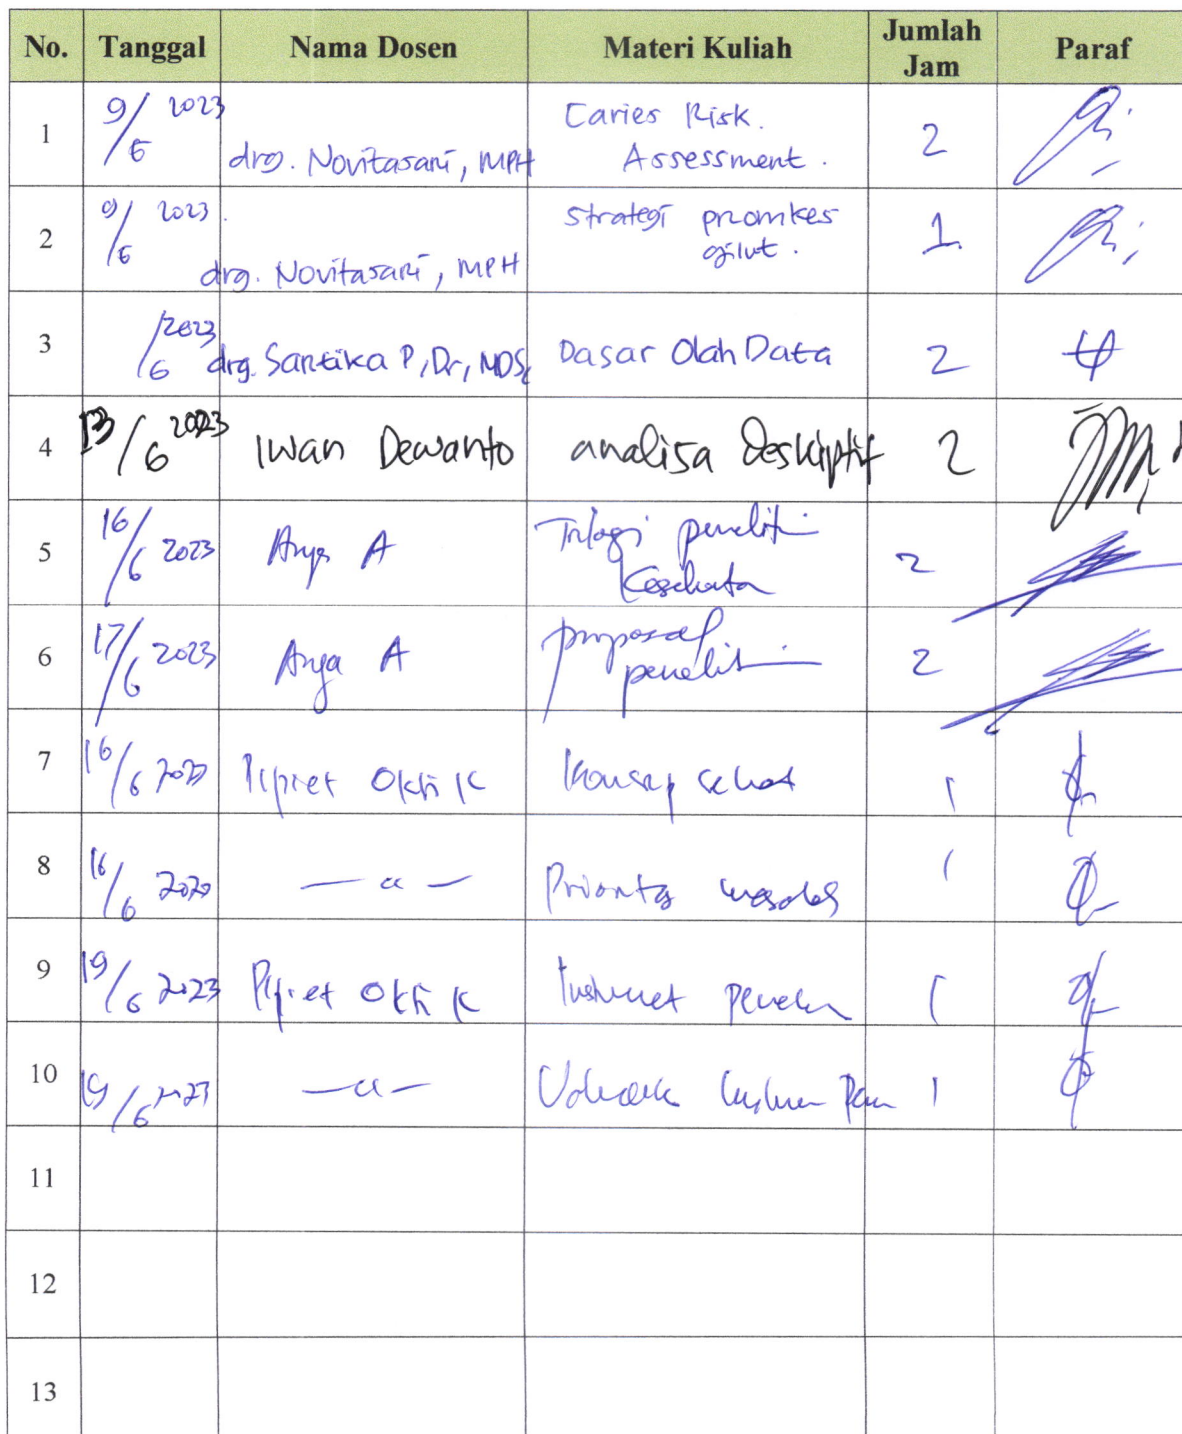 No. Tanggal Nama Dosen Materi Kuliah Jumlah Jam Paraf
1 9/6 2023 drg. Novitasari, MPH Caries Risk. Assessment. 2
2 9/6 2023. drg. Novitasari, MPH Strategi promkes gilut. 1.
3 /6 2023 drg. Santika P, Dr, MDSc Dasar Olah Data 2
4 13/6 2023 Iwan Dewanto analisa Deskiptif 2
5 16/6 2023 Arya A Trilogi 2
6 17/6 2023 Arya A proposal 2
7 16/6 Pipiet Okti K Konsep sehat 1
8 16/6 — " — 1
9 19/6 2023 Pipiet Okti K 1
10 19/6 2023 — " — 1
11
12
13